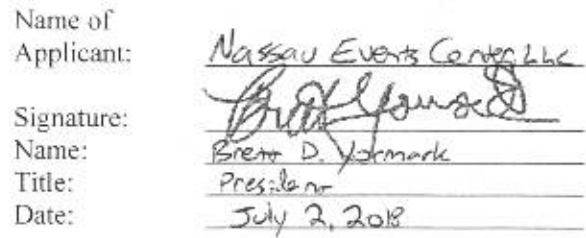 Name of
Applicant: Nassau Events Center, LLC
Signature: Brett Yormark
Name: Brett D. Yormark
Title: President
Date: July 2, 2018